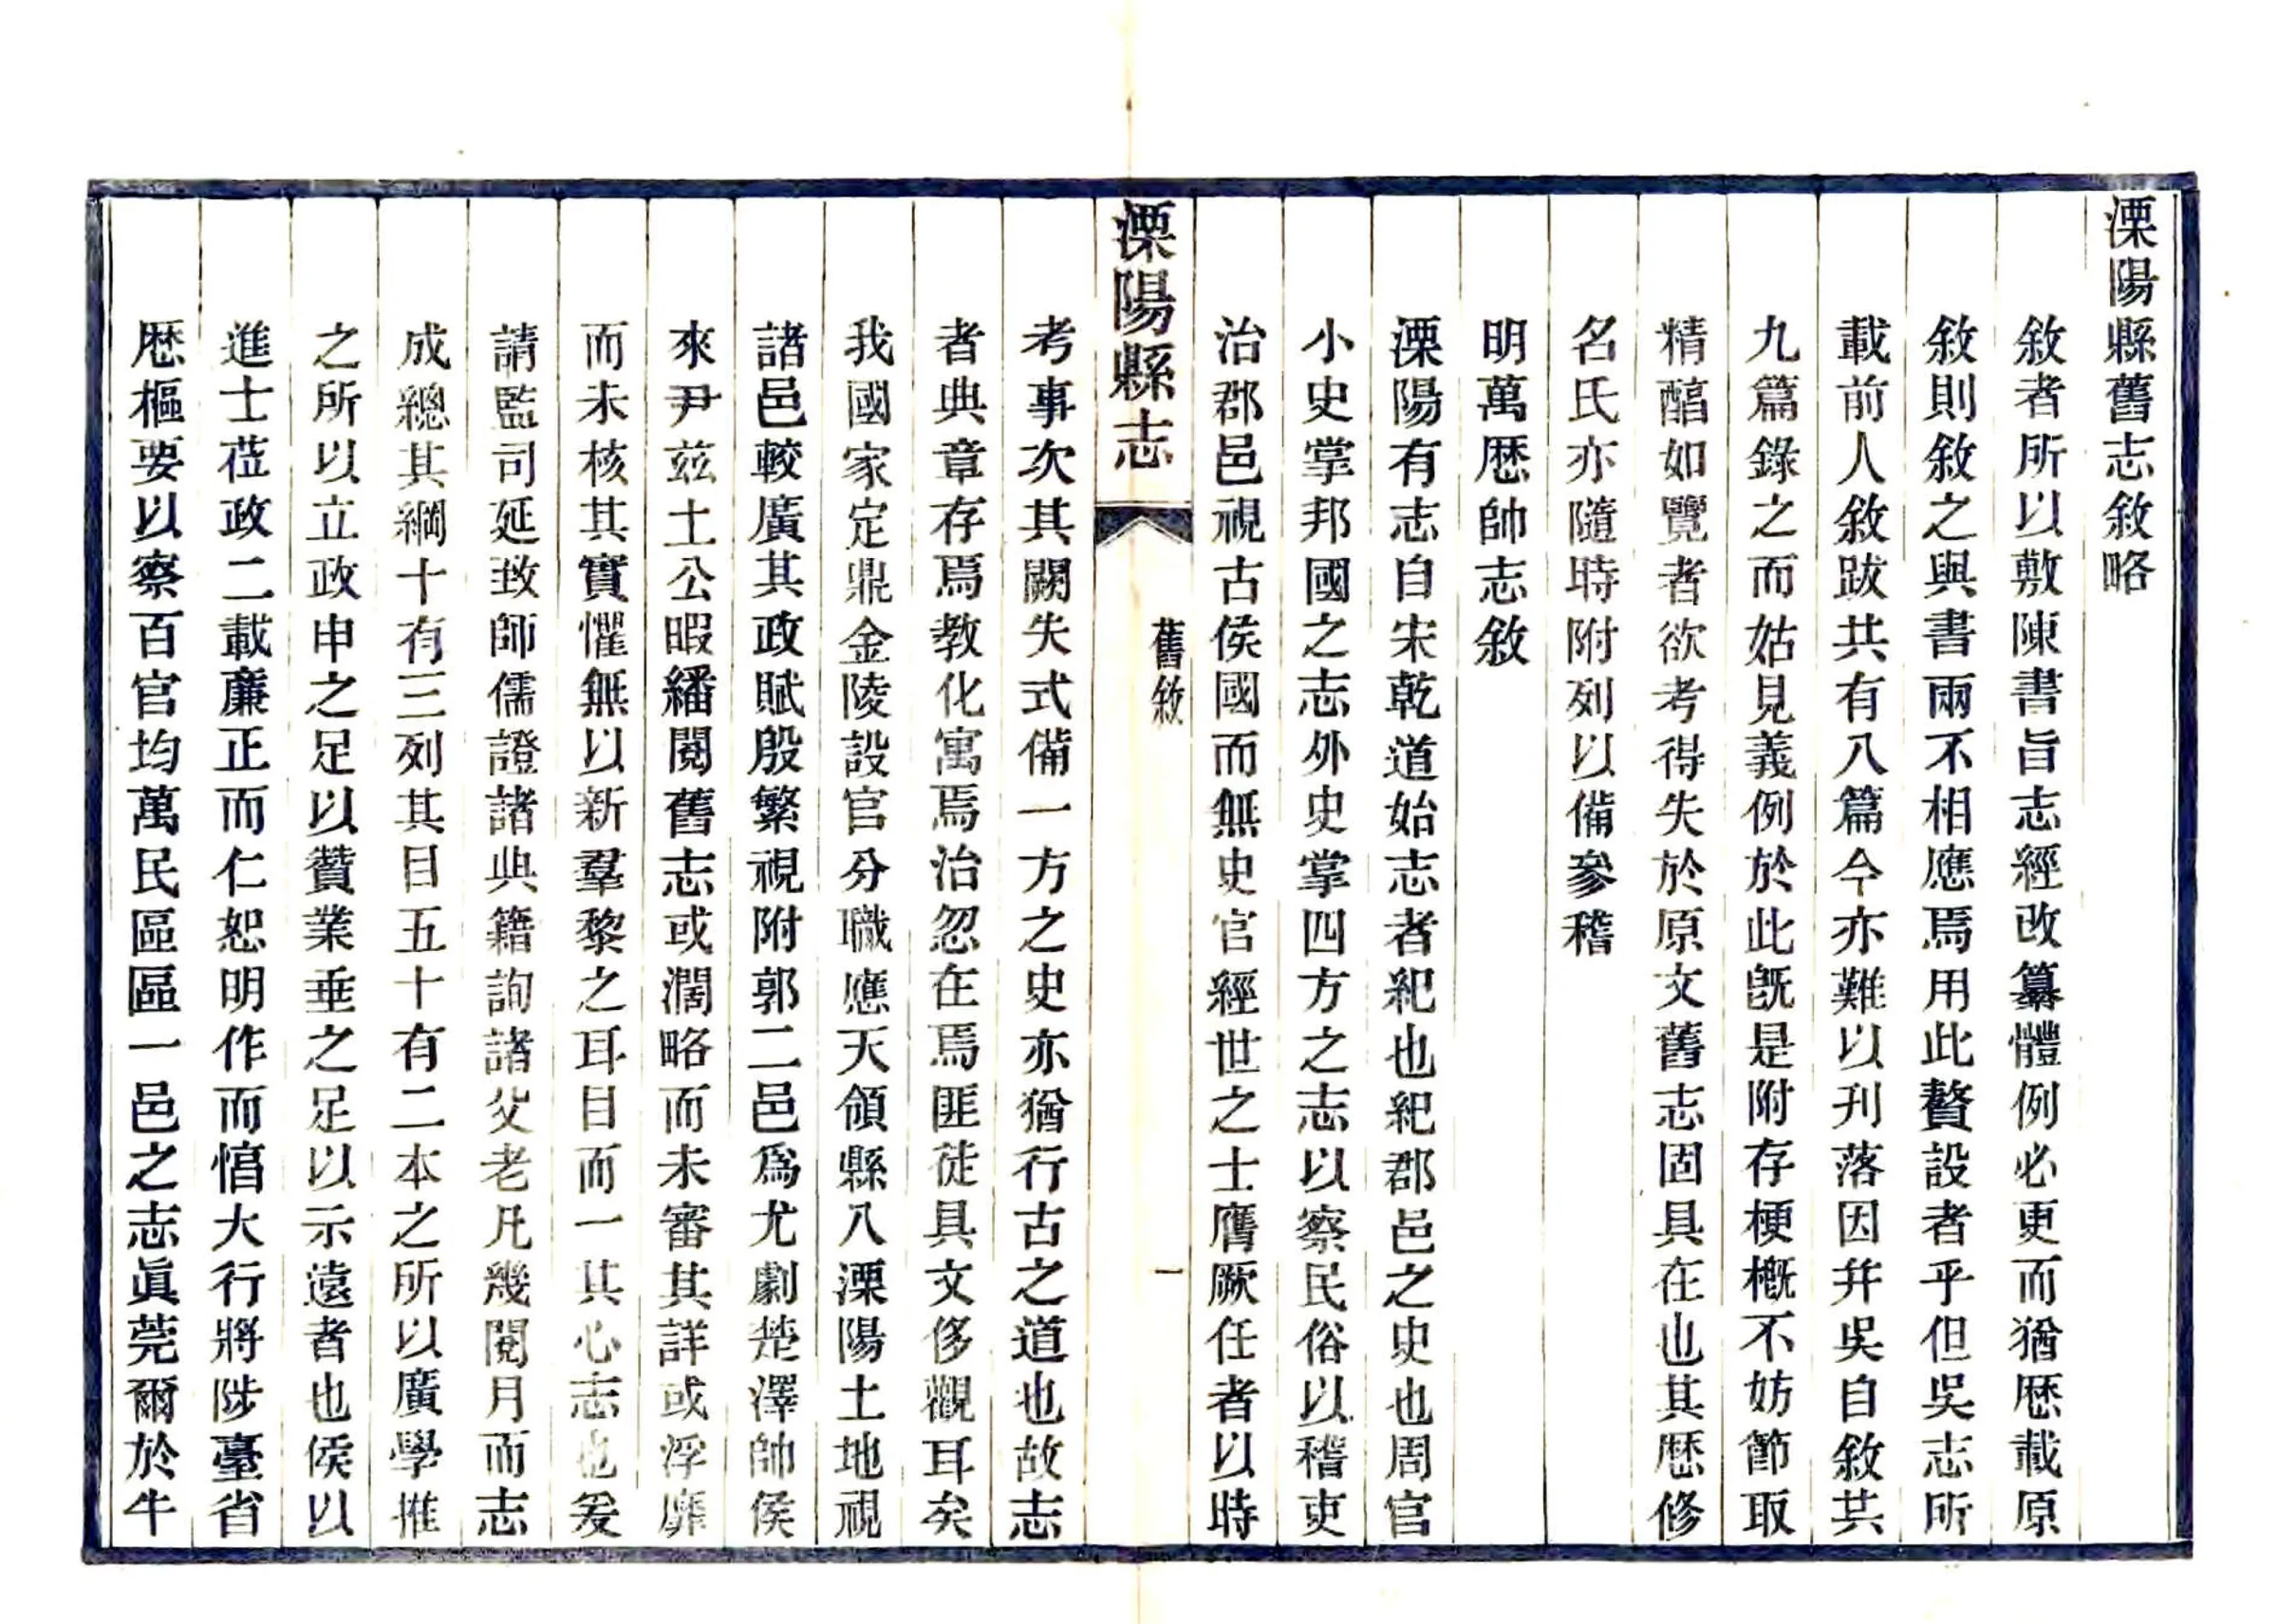 溧陽縣舊志敘略
敘者所以敷陳書旨志經改纂體例必更而猶厯載原
敘則敘之與書兩不相應焉用此贅設者乎但吳志所
載前人敘跋共有八篇今亦難以刋落因幷吳自敘共
九篇錄之而姑見義例於此旣是附存梗槪不妨節取
精醕如覽者欲考得失於原文舊志固具在也其厯修
名氏亦隨時附列以備參稽
明萬厯帥志敘
溧陽有志自宋乾道始志者紀也紀郡邑之史也周官
小史掌邦國之志外史掌四方之志以察民俗以稽吏
治郡邑視古侯國而無史官經世之士膺厥任者以時
溧陽縣志
舊敘
一
考事次其闕失式備一方之史亦猶行古之道也故志
者典章存焉教化寓焉治忽在焉匪徒具文侈觀耳矣
我國家定鼎金陵設官分職應天領縣八溧陽土地視
諸邑較廣其政賦殷繁視附郭二邑爲尤劇楚澤帥侯
來尹玆土公暇繙閱舊志或濶略而未審其詳或浮靡
而未核其實懼無以新羣黎之耳目而一其心志也爰
請監司延致師儒證諸典籍詢諸父老凡幾閱月而志
成總其綱十有三列其目五十有二本之所以廣學推
之所以立政申之足以贊業垂之足以示遠者也侯以
進士莅政二載亷正而仁恕明作而惝大行將陟臺省
厯樞要以察百官均萬民區區一邑之志眞莞爾於牛